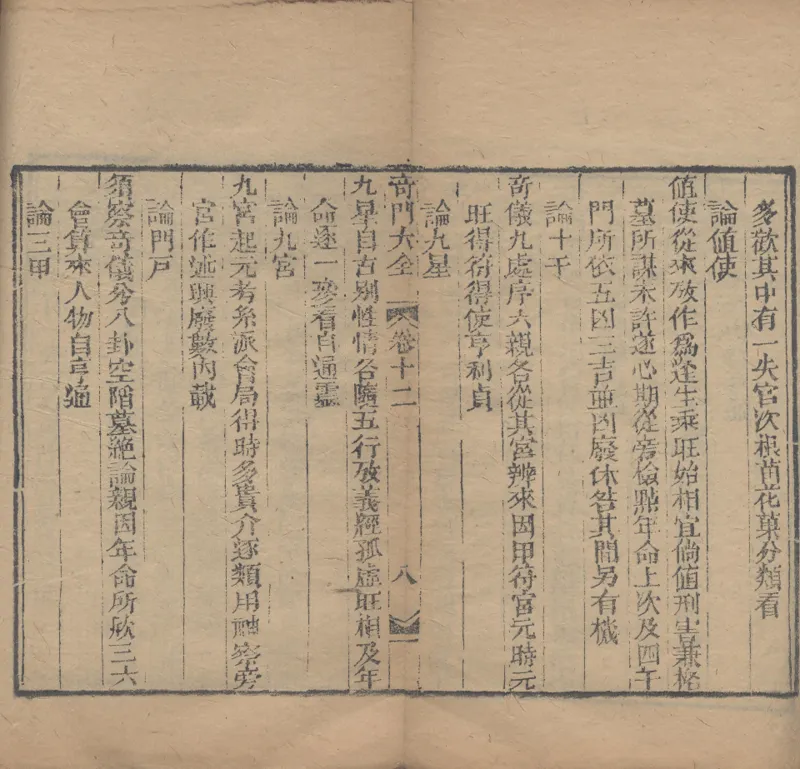 多歡其中有一失官次根苗花菓分類看
論值使
值使從來攷作為逢生乘旺始相宜倘值刑害兼格
墓所謀未許遂心期從旁檢點年命上次及四干
門所依五凶三吉並凶廢休咎其間另有機
論十干
奇儀九處序六親各從其宮辨來因甲符宮元時元
旺得符得使亨利貞
論九星
奇門大全 卷十二 八
九星自古別性情各隨五行攷義經孤虛旺相及年
命逐一參看自通靈
論九宮
九宮起元考糸派會局得時多貴介逐類用神察旁
宮作述興廢數內載
論門戶
須察奇儀分八卦空陷墓絕論親因年命所欣三六
會算來人物自亨通
論三甲